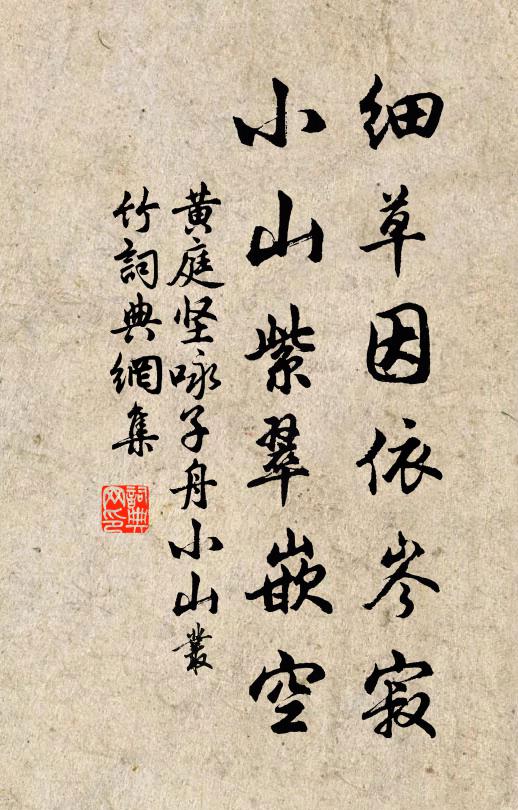 细草因依岑寂
小山紫翠嵌空
黄庭坚咏子舟小山叢
竹詞典網集
詞典
网印